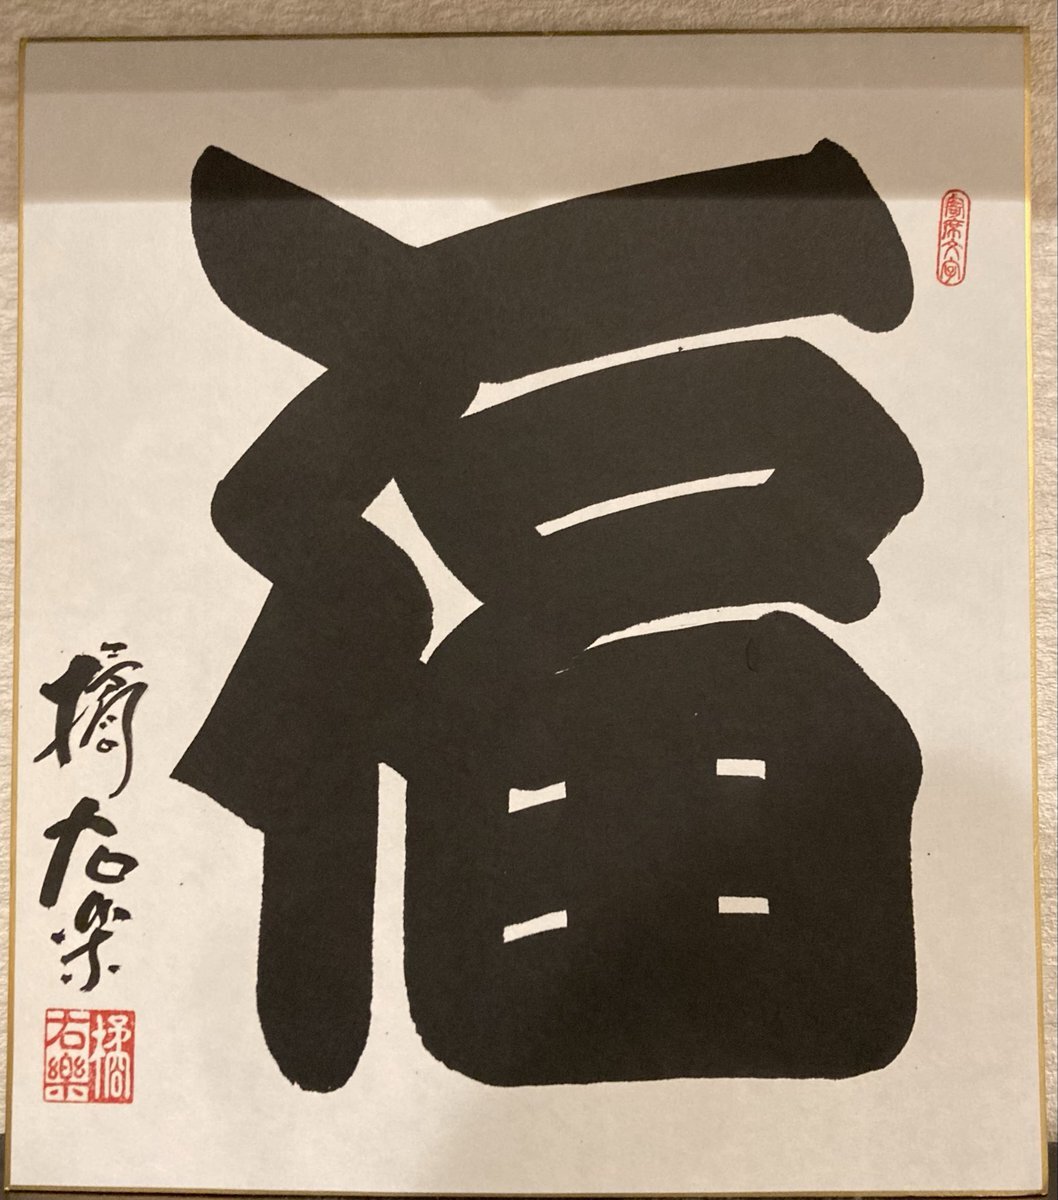 寄席文字
福
橘右楽
橘右樂